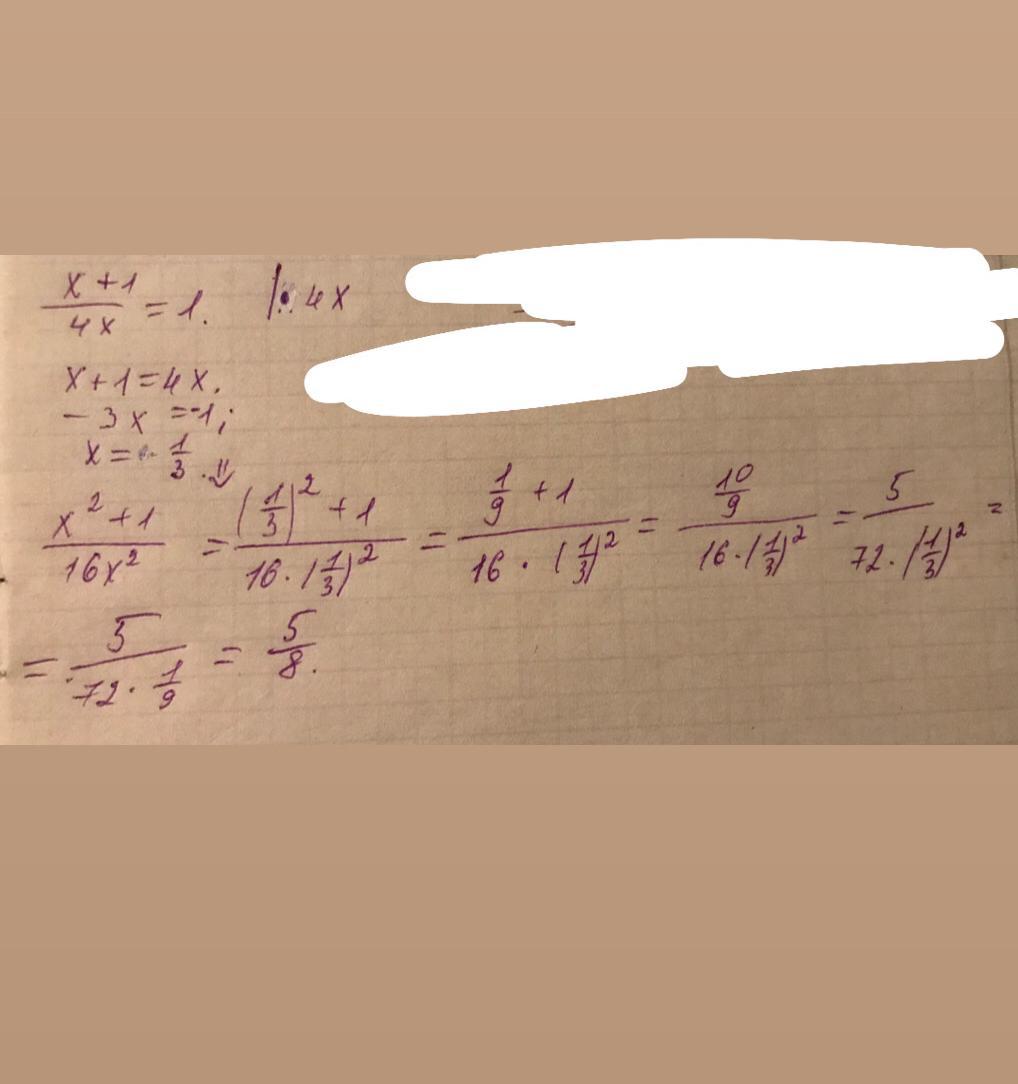 (x+1)/(4x) = 1. |· 4x
x+1=4x.
-3x=-1;
x= 1/3. ⇓
(x²+1)/(16x²) = ((1/3)²+1)/(16·(1/3)²) = (1/9+1)/(16·(1/3)²) = (10/9)/(16·(1/3)²) = 5/(72·(1/3)²) =
= 5/(72·1/9) = 5/8.